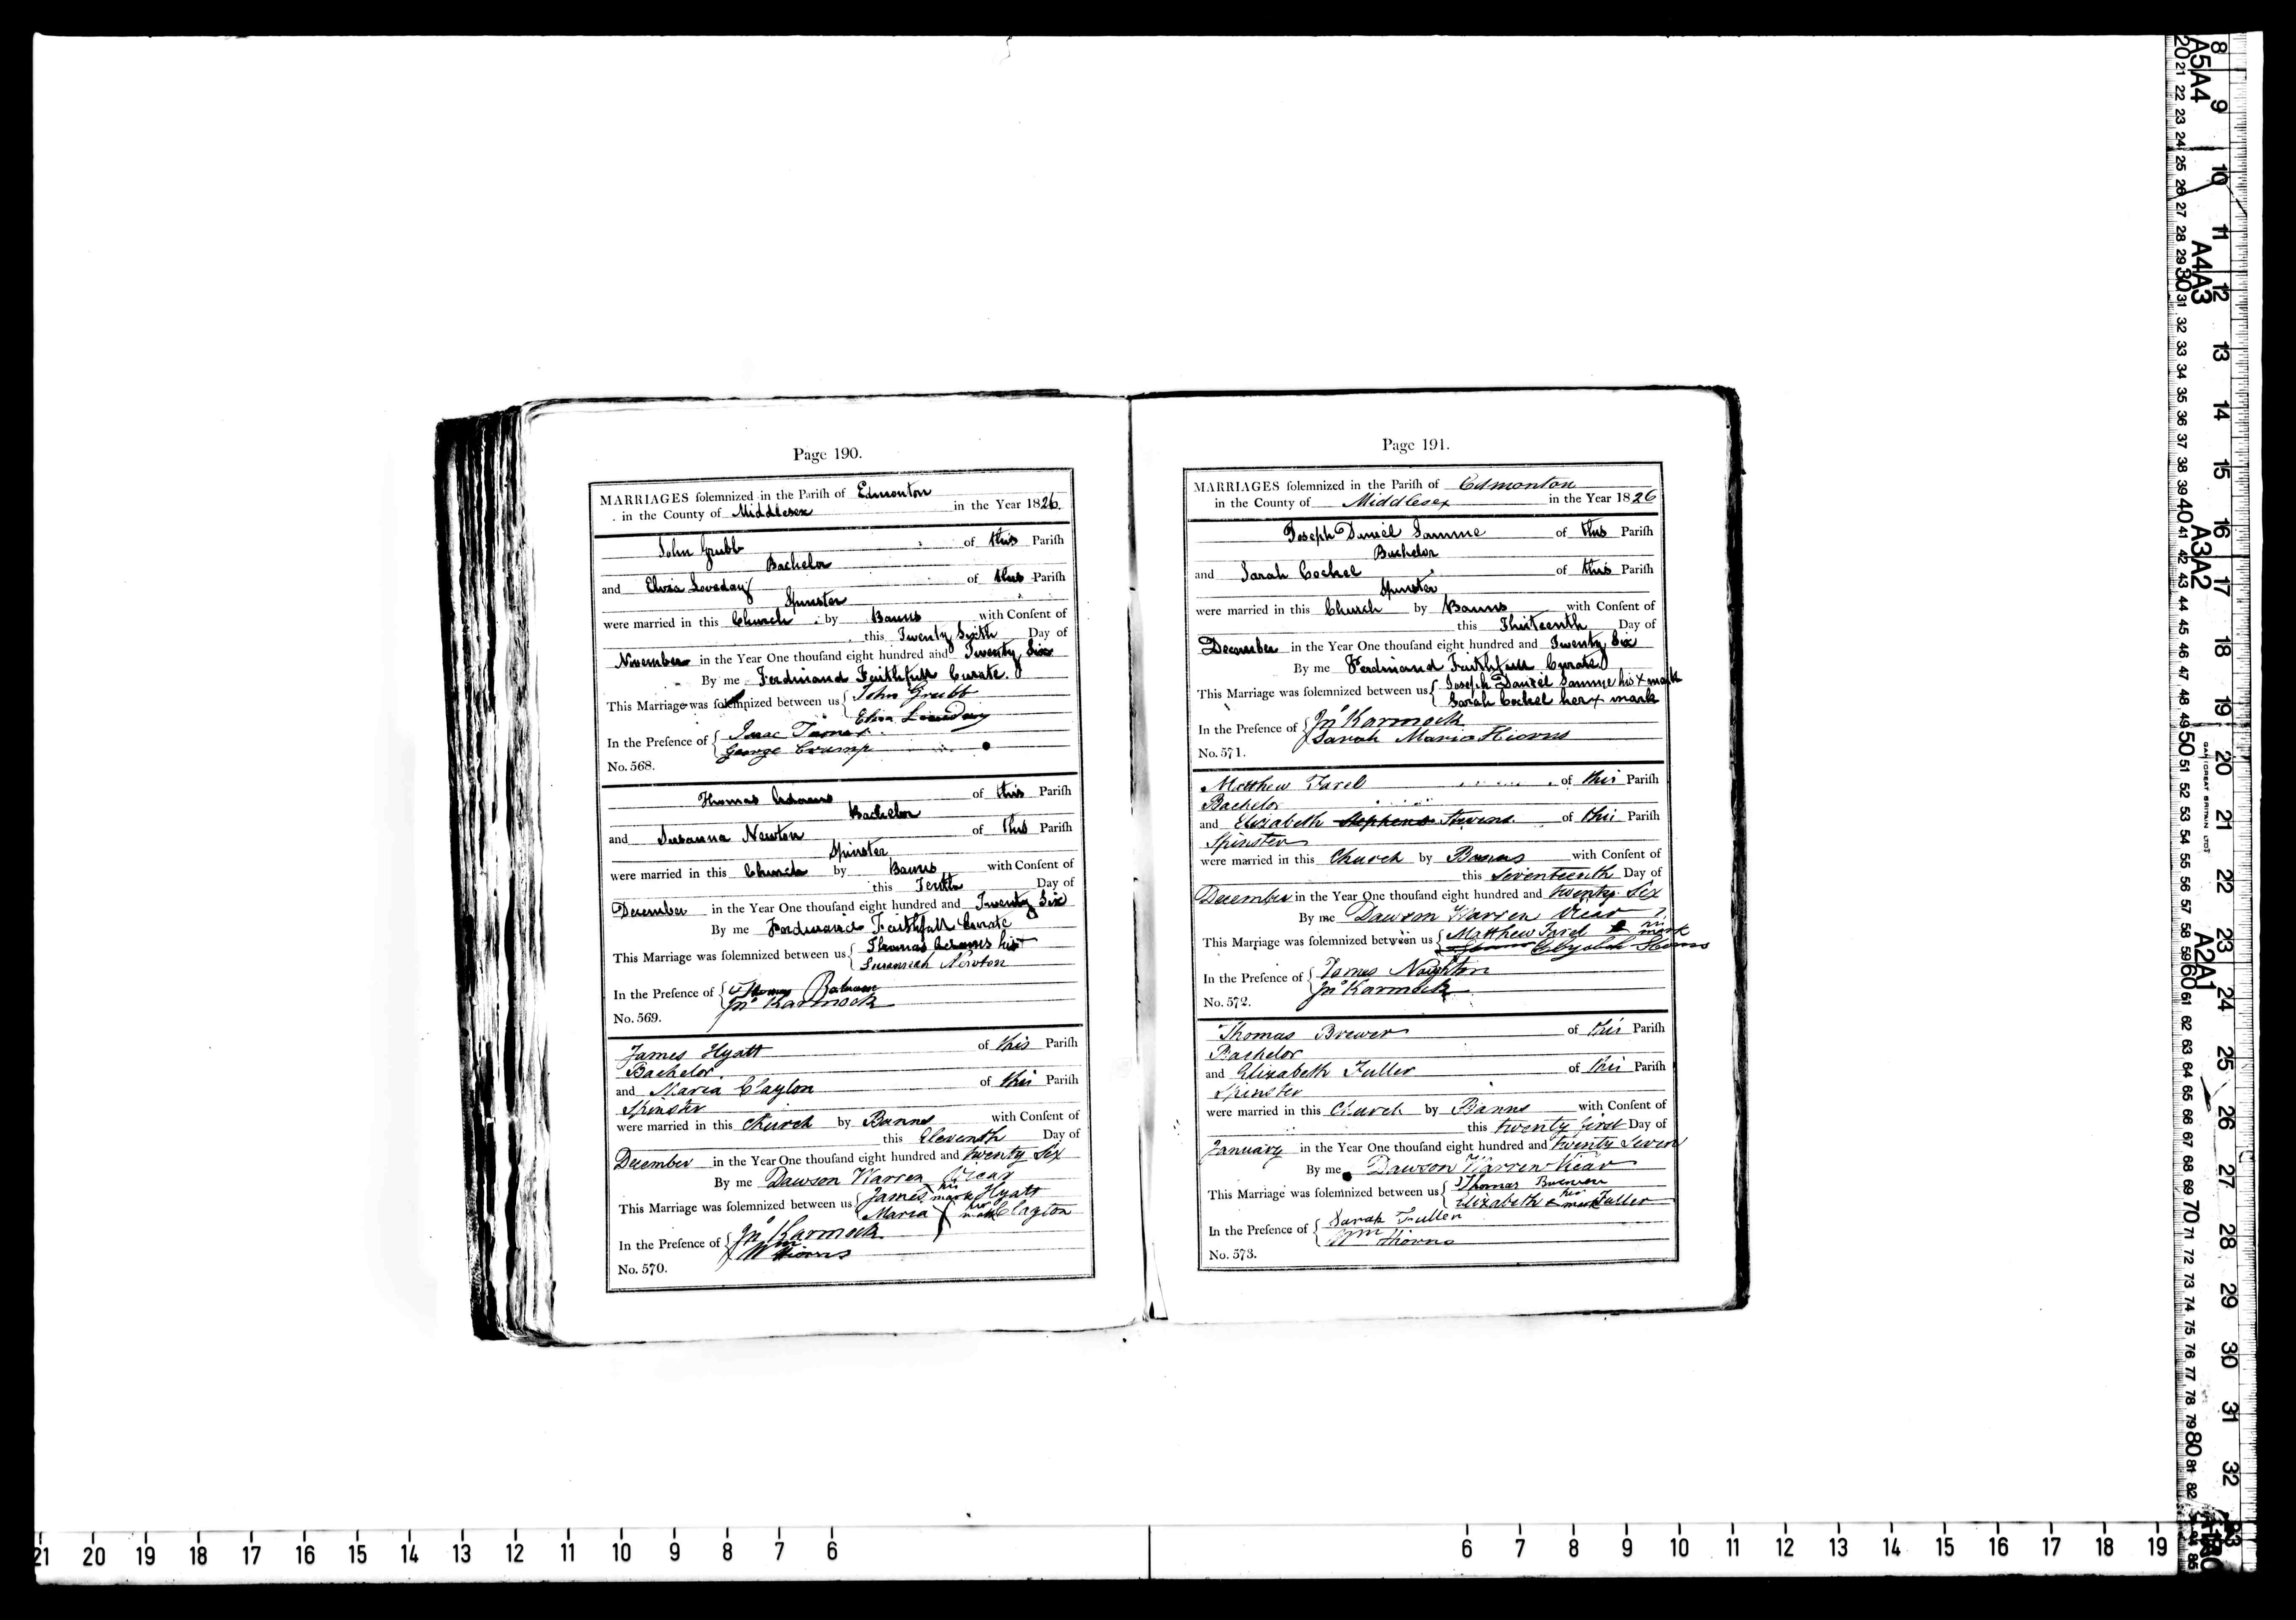 Page 190.
MARRIAGES solemnized in the Parish of Edmonton
in the County of Middlesex in the Year 1826.
John Grubb of this Parish
Bachelor
and Eliza Loveday of this Parish
Spinster
were married in this Church by Banns with Consent of
this Twenty Sixth Day of
November in the Year One thousand eight hundred and Twenty Six
By me Ferdinand Faithfull Curate.
This Marriage was solemnized between us { John Grubb
Eliza Loveday
In the Presence of { Isaac
George Cramp
No. 568.
Thomas Adams of this Parish
Bachelor
and Susanna Newton of this Parish
Spinster
were married in this Church by Banns with Consent of
this Tenth Day of
December in the Year One thousand eight hundred and Twenty Six
By me Ferdinand Faithfull Curate
This Marriage was solemnized between us { Thomas Adams his +
Susannah Newton
In the Presence of { Thomas
Jno Karmock
No. 569.
James Hyatt of this Parish
Bachelor
and Maria Clayton of this Parish
Spinster
were married in this Church by Banns with Consent of
this Eleventh Day of
December in the Year One thousand eight hundred and twenty Six
By me Dawson Warren Vicar
This Marriage was solemnized between us { James his mark Hyatt
Maria her mark Clayton
In the Presence of { Jno Karmock
Wm Hiorns
No. 570.
Page 191.
MARRIAGES solemnized in the Parish of Edmonton
in the County of Middlesex in the Year 1826
Joseph Daniel Samme of this Parish
Bachelor
and Sarah Cockel of this Parish
Spinster
were married in this Church by Banns with Consent of
this Thirteenth Day of
December in the Year One thousand eight hundred and Twenty Six
By me Ferdinand Faithfull Curate
This Marriage was solemnized between us { Joseph Daniel Samme his x mark
Sarah Cockel her x mark
In the Presence of { Jno Karmock
Sarah Maria Hiorns
No. 571.
Matthew Farel of this Parish
Bachelor
and Elizabeth Stephens Stevens of this Parish
Spinster
were married in this Church by Banns with Consent of
this Seventeenth Day of
December in the Year One thousand eight hundred and twenty Six
By me Dawson Warren Vicar
This Marriage was solemnized between us { Matthew Farel his mark
In the Presence of { James Naighton
Jno Karmock
No. 572.
Thomas Brewer of this Parish
Bachelor
and Elizabeth Fuller of this Parish
Spinster
were married in this Church by Banns with Consent of
this twenty first Day of
January in the Year One thousand eight hundred and twenty Seven
By me Dawson Warren Vicar
This Marriage was solemnized between us { Thomas Brewer
Elizabeth her mark Fuller
In the Presence of { Sarah Fuller
Wm Hiorns
No. 573.
21 20 19 18 17 16 15 14 13 12 11 10 9 8 7 6 6 7 8 9 10 11 12 13 14 15 16 17 18 19
8 9 10 11 12 13 14 15 16 17 18 19 20 21 22 23 24 25 26 27 28 29 30 31 32
A5A4
A4A3
A3A2
A2A1